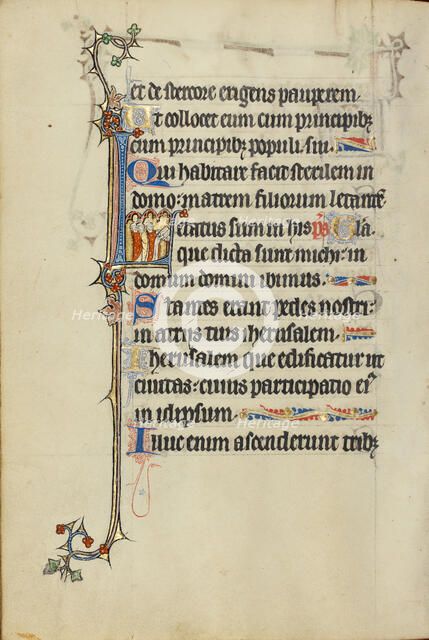 et de stercore erigens pauperem.
Ut collocet eum cum principibꝫ
cum principibꝫ populi sui.
Qui habitare facit sterilem in
domo: matrem filiorum letantē
Letatus sum in his ps Gła
que dicta sunt michi: in
domum domini ibimus.
Stantes erant pedes nostri:
in atriis tuis iherusalem.
Iherusalem que edificatur ut
ciuitas: cuius participatio eiꝰ
in idipsum.
Illuc enim ascenderunt tribꝫ
Heritage
Heritage
Heritage
Heritage